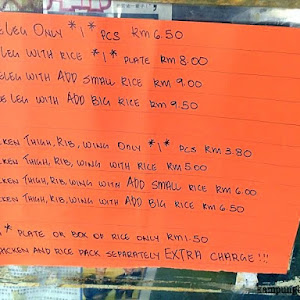 LEG ONLY *1* PCS RM 6.50
LEG WITH RICE *1* PLATE RM 8.00
LEG WITH ADD SMALL RICE RM 9.00
LEG WITH ADD BIG RICE RM 9.50
CKEN THIGH, RIB, WING ONLY *1* PCS RM 3.80
CKEN THIGH, RIB, WING WITH RICE RM 5.00
CKEN THIGH, RIB, WING WITH ADD SMALL RICE RM 6.00
CKEN THIGH, RIB, WING WITH ADD BIG RICE RM 6.50
* PLATE OR BOX OF RICE ONLY RM 1.50
HICKEN AND RICE PACK SEPARATELY EXTRA CHARGE!!!